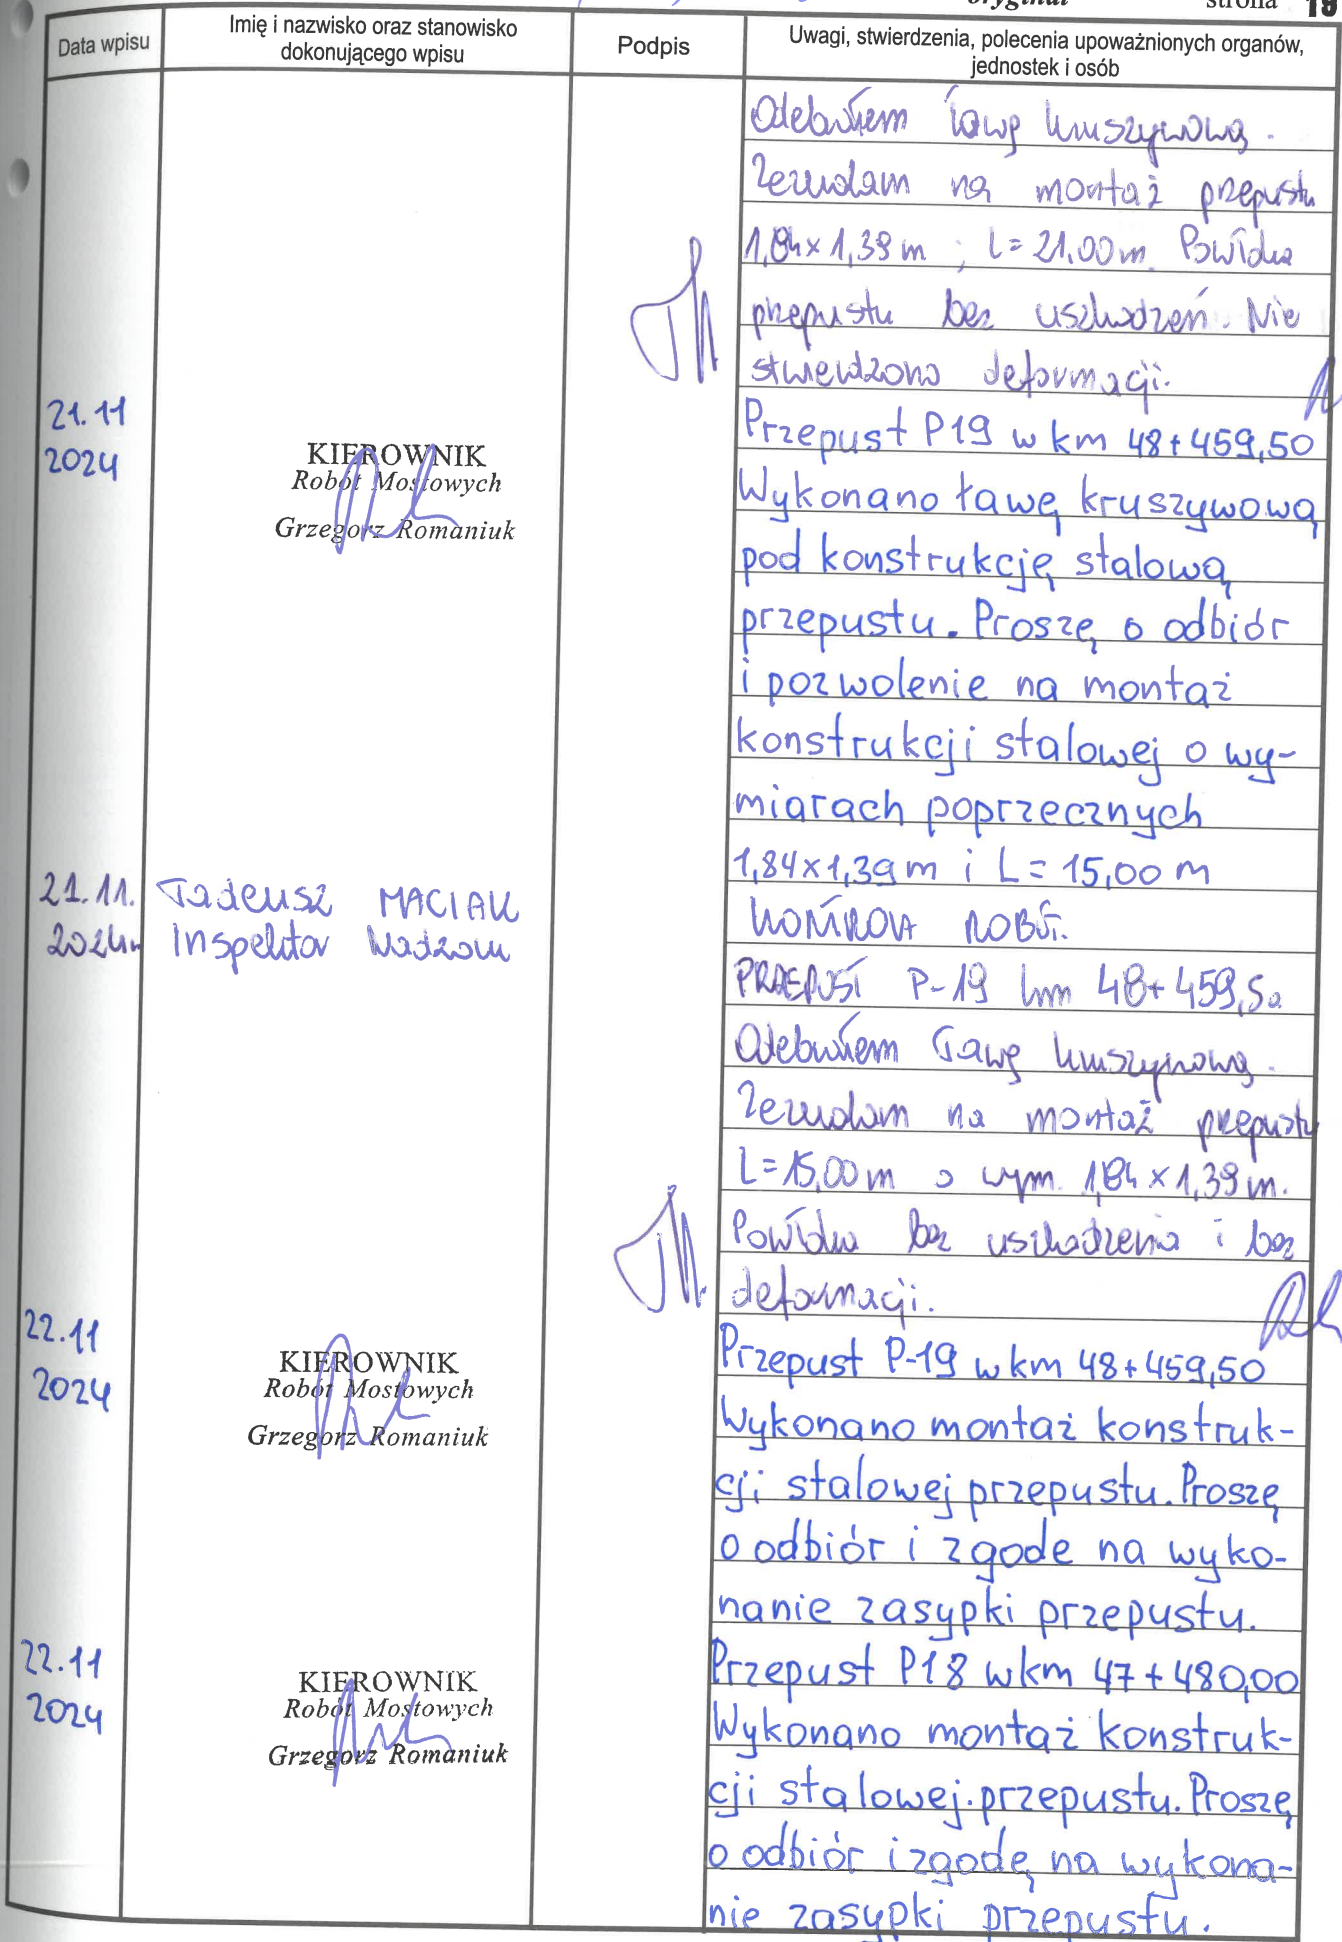 oryginał strona 19
Data wpisu
Imię i nazwisko oraz stanowisko
dokonującego wpisu
Podpis
Uwagi, stwierdzenia, polecenia upoważnionych organów,
jednostek i osób
Odebrałem ławę kruszywową.
Zezwalam na montaż przepustu
1,84x1,39m ; L=21.00m. Powłoka
przepustu bez uszkodzeń. Nie
stwierdzono deformacji.
21.11
2024
KIEROWNIK
Robót Mostowych
Grzegorz Romaniuk
Przepust P19 w km 48+459,50
Wykonano ławę kruszywową
pod konstrukcję stalową
przepustu. Proszę o odbiór
i pozwolenie na montaż
konstrukcji stalowej o wy-
miarach poprzecznych
1,84x1,39m i L=15,00m
21.11.
2024r
Tadeusz MACIAK
Inspektor Nadzoru
KONTROLA ROBÓT.
PRZEPUST P-19 km 48+459,50
Odebrałem ławę kruszywową.
Zezwalam na montaż przepustu
L=15,00m o wym. 1,84x1,39m.
Powłoka bez uszkodzenia i bez
deformacji.
22.11
2024
KIEROWNIK
Robót Mostowych
Grzegorz Romaniuk
Przepust P-19 w km 48+459,50
Wykonano montaż konstruk-
cji stalowej przepustu. Proszę
o odbiór i zgode na wyko-
nanie zasypki przepustu.
22.11
2024
KIEROWNIK
Robót Mostowych
Grzegorz Romaniuk
Przepust P18 w km 47+480,00
Wykonano montaż konstruk-
cji stalowej.przepustu. Proszę
o odbiór i zgodę na wykona-
nie zasypki przepustu.